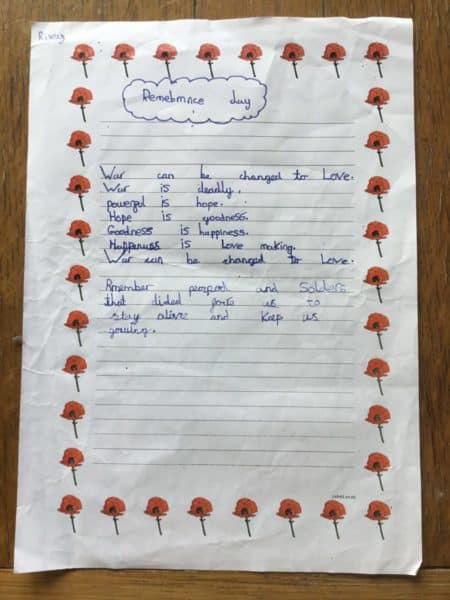 Remebrnce day
War can be changed to Love.
War is deadly.
powerful is hope.
Hope is goodness.
Goodness is happiness.
Happenuss is Love making.
War can be changed to Love.
Rmember and Solders
that dided us to
stay alive and keep us